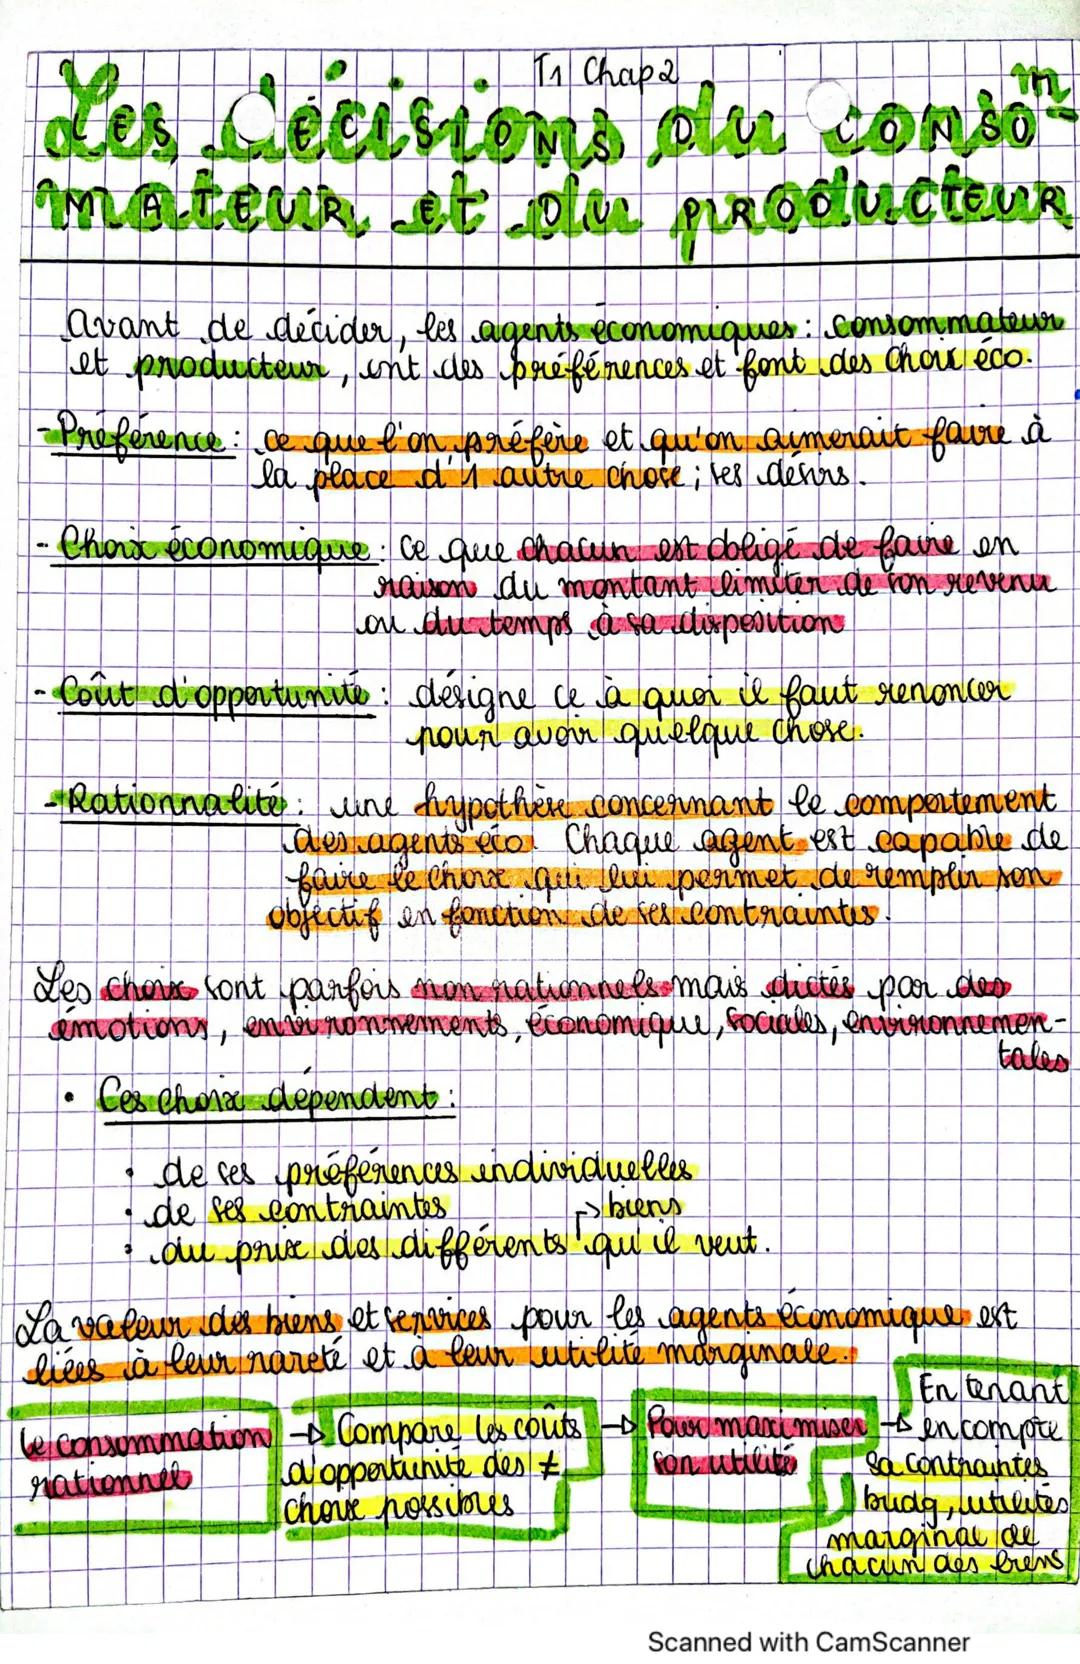 T1 Chap 2
Les décisions du consom-
mateur et du producteur
Avant de décider, les agents économiques : consommateur
et producteur, ont des préférences et font des choix éco.
- Préférence : ce que l'on préfère et qu'on aimerait faire à
la place d'1 autre chose ; ses désirs.
- Choix économique : ce que chacun est obligé de faire en
raison du montant limiter de son revenu
ou du temps à sa disposition
- Coût d'opportunité : désigne ce à quoi il faut renoncer
pour avoir quelque chose.
- Rationnalité : une hypothèse concernant le comportement
des agents éco. Chaque agent est capable de
faire le choix qui lui permet de remplir son
objectif en fonction de ses contraintes.
Les choix sont parfois non rationnels mais dictés par des
émotions, environnements, économique, sociales, environnemen-
tales
• Ces choix dépendent :
• de ses préférences individuelles
• de ses contraintes
→ biens
• du prix des différents qu'il veut.
La valeur des biens et services pour les agents économique est
liées à leur rareté et à leur utilité marginale.
Le consommation
rationnel
→ Compare les coûts
d'opportunité des ≠
choix possibles
→ Pour maximiser
son utilité
→ En tenant
en compte
sa contraintes
budg, utilités
marginal de
chacun des biens
Scanned with CamScanner